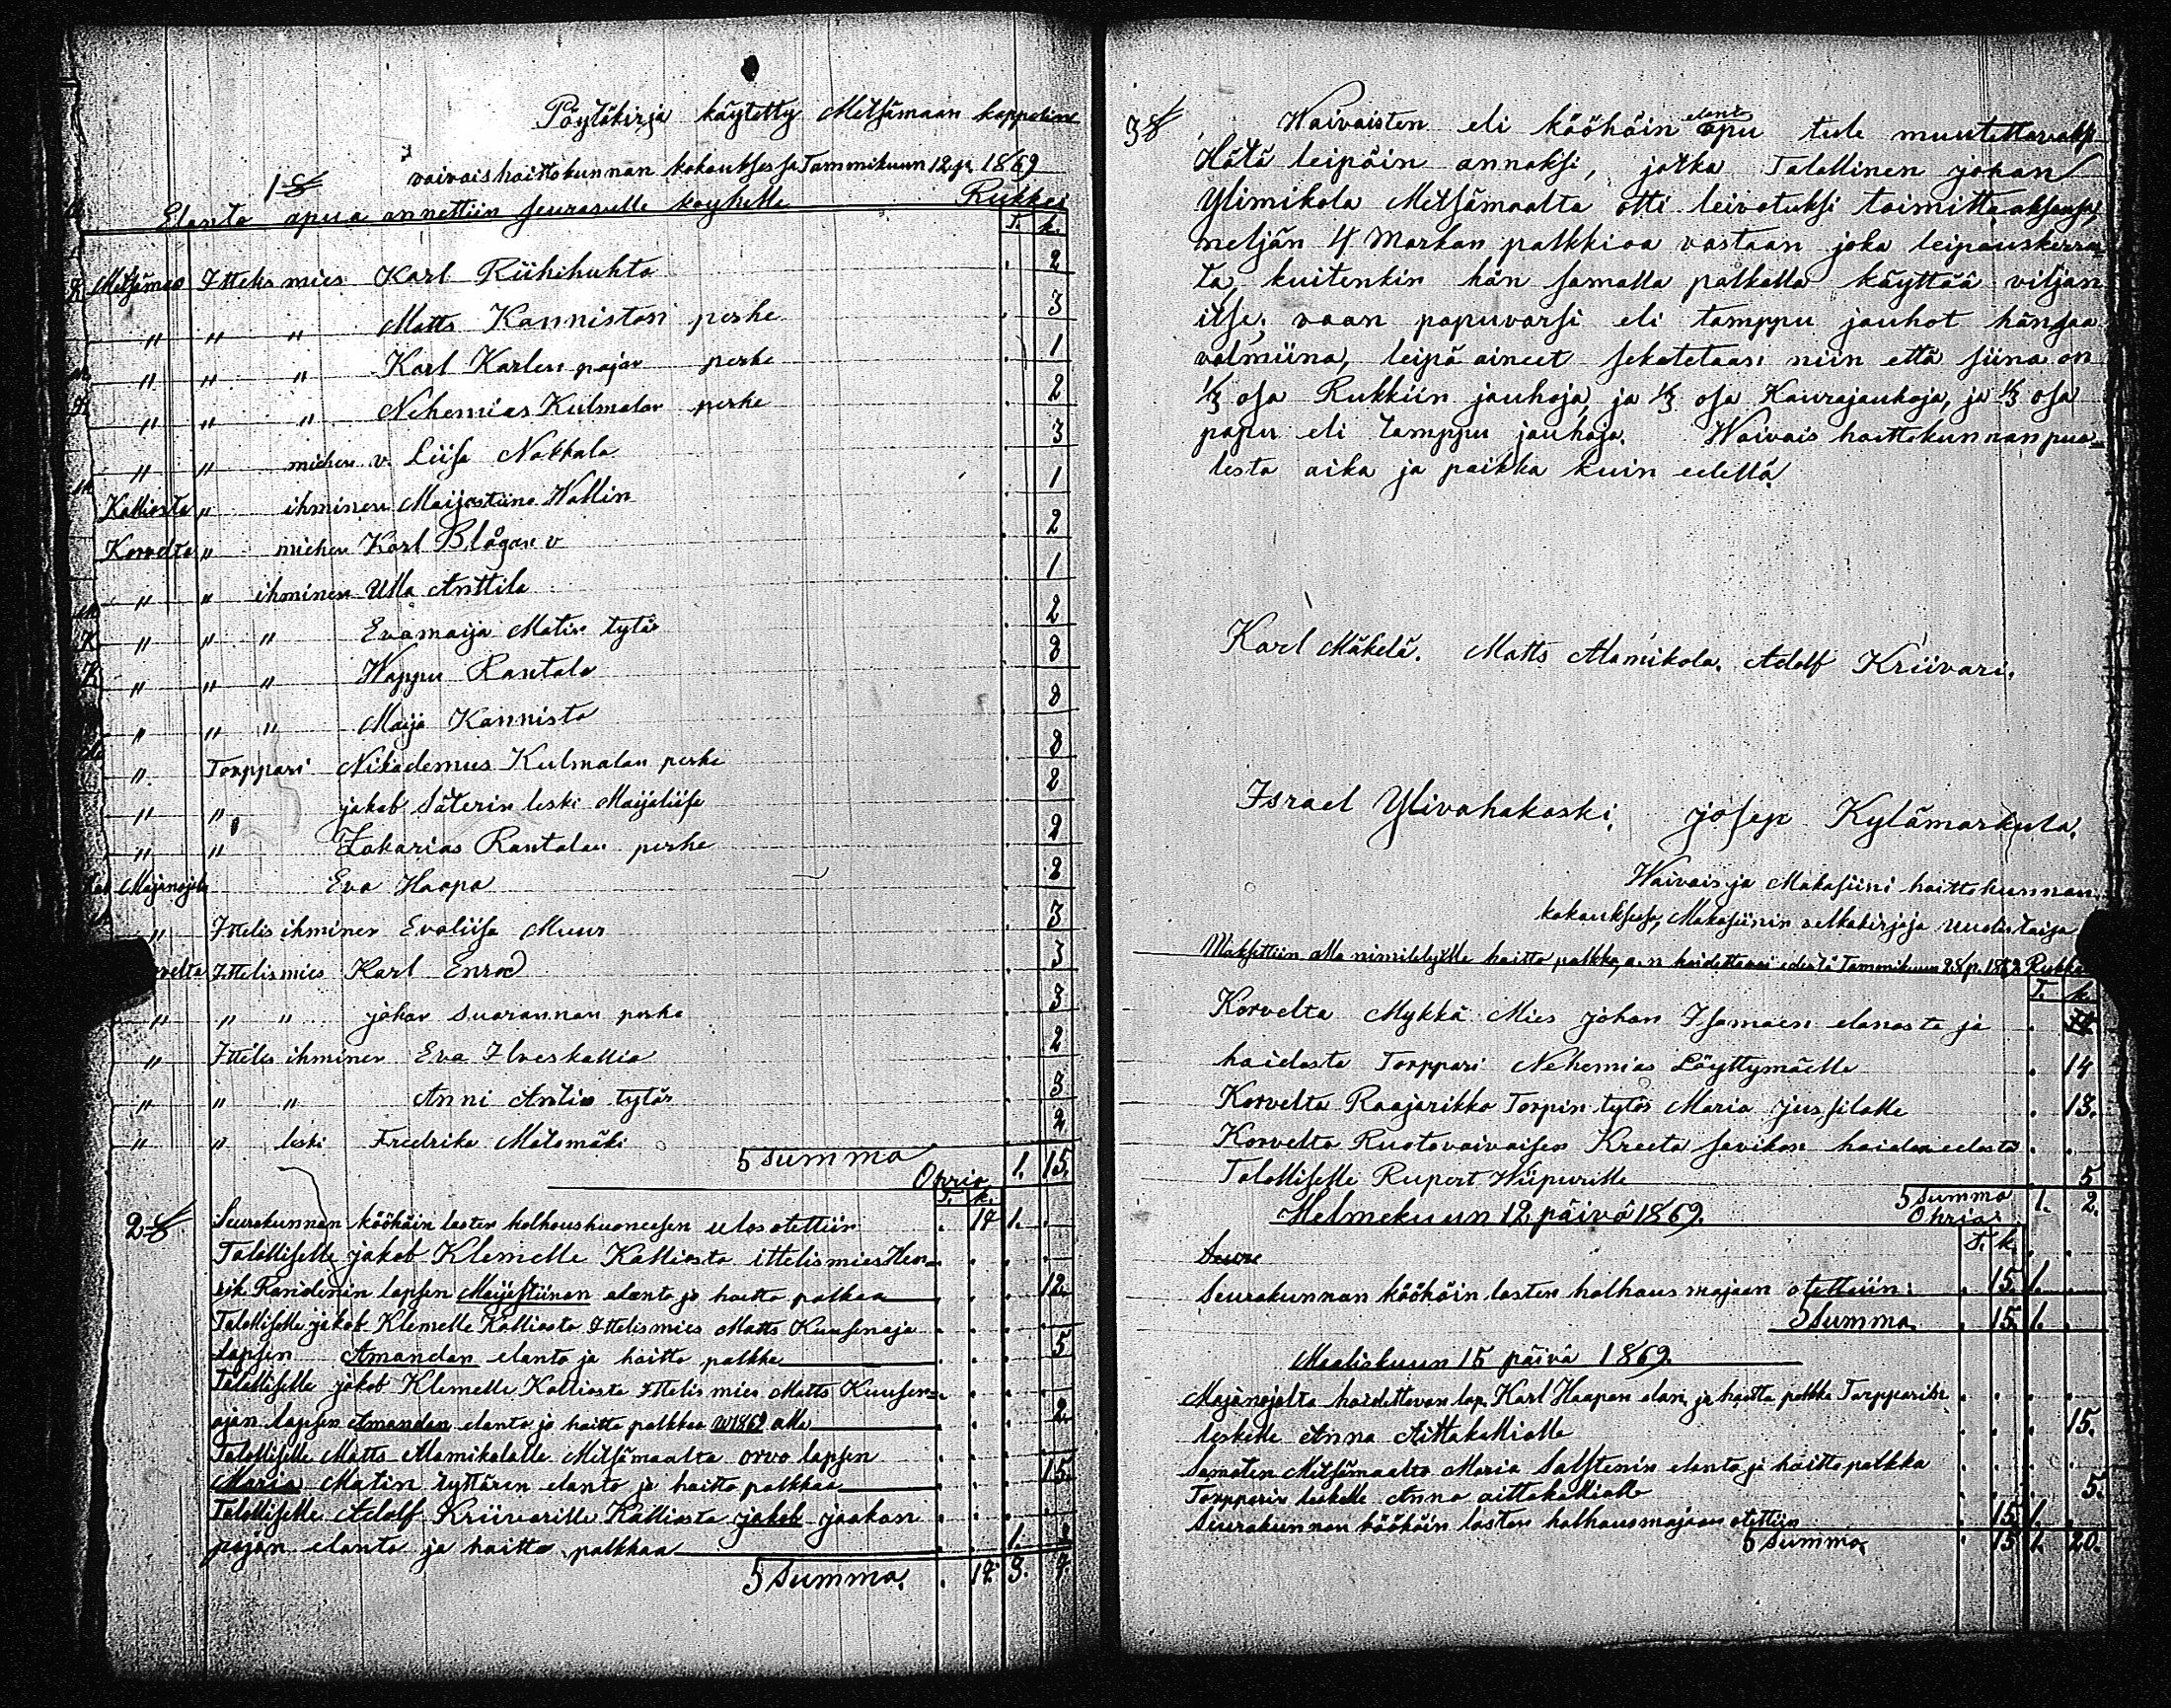 Pöytäkirja käytetty Metsämaan kappelin
vaivaishoittokunnan kokouksessa Tammikuun 12 p. 1869
1 §
Elanto apua annettiin seuraville köyhille Rukkei
T. k.
Metsämaa Ittelis mies Karl Riihihuhta . 2
" " " Matts Kanniston perhe . 3
" " " Karl Karlen pojan perhe . 1
" " " Nehemias Kulmalan perhe . 2
" " miehen v. Liisa Nokkala . 3
Kalliosta " ihminen Maijastiina Wallin . 1
Korvelta " miehen Karl Blågan v . 2
" " ihminen Ulla Anttila . 1
" " " Evamaija Matin tytär . 2
" " " Wappu Rantala . 8
" " " Maija Kannisto . 8
" Torppari Nikademus Kulmalan perhe . 8
" " jakob Säterin leski Maijaliisa . 2
" " Zakarias Rantalan perhe . 2
Majanojalta Eva Haapa . 2
" Ittelis ihminen Evaliisa Muur . 3
Korvelta Ittelis mies Karl Enrod . 3
" " " johan Suorannan perhe . 3
" Ittelis ihminen Eva Ilveskallio . 2
" " " Anni Antin tytär . 3
" " leski Fredrika Mätämäki . 2
Summa 1. 15.
Ohria
T. k.
2 § Seurakunnan kööhäin lasten holhoushuoneesen ulosotettiin . 17 1. .
Talolliselle jakob Klemelle Kalliosta ittelismies Hen-
rik Randenin lapsen Maijastiinan elanto ja hoitto palkkaa . . . 12.
Talolliselle jakob Klemelle Kalliosta Ittelismies Matts Kuusenoja
lapsen Amandan elanto ja hoitto palkka . . . 5
Talolliselle jakob Klemelle Kalliosta Ittelis mies Matts Kuusen-
ojan lapsen Amandan elanto ja hoitto palkkaa 1869 alle . . . 2.
Talolliselle Matts Alamikolalle Metsämaalta orvo lapsen
Maria Matin tyttären elanto ja hoitto palkkaa . . . 15.
Talolliselle Adolf Kriivarille Kalliosta jakob jaakon
pojan elanto ja hoitto palkkaa . . 1.
Summa. . 17. 3. 7.
3 § Waivaisten eli kööhäin elanto apu tule muutettavaksi
Hätä leipäin annoksi, jotka Talollinen johan
Ylimikola Metsämaalta otti leivotuksi toimittaaksensa,
neljän 4 Markan palkkioa vastaan joka leipäuskerra-
ta, kuitenkin hän samalla palkalla käyttää viljan
itse, vaan papuvarsi eli tamppu jauhot hän saa
valmiina, leipä aineet sekotetaan niin että siina on
1/3 osa Rukkiin jauhoja, ja 1/3 osa Kaurajauhoja, ja 1/3 osa
papu eli tamppu jauhoja. Waivais hoittokunnan puo-
lesta aika ja paikka kuin edellä.
Karl Mäkelä. Matts Alamikola. Adolf Kriivari.
Israel Ylivahakoski. josep Kylämarkula.
Waivais ja Makasiini hoittokunnan
kokouksessa, Makasiinin velkakirjoja uudistaisa
Maksettiin alla nimitetyille hoitto palkkaa n hoidettavai edestä Tammikuun 28 p. 1869 Rukkei
T. k.
Korvelta Mykkä Mies johan Isomaen elanosta ja
hoidosta Torppari Nehemias Löyttymäelle . 14
Korvelta Raajarikko Torpin tytös Maria jussilalle . 13.
Korvelta Ruotovaivaisen Kreeta Savikon hoidon edestä . .
Talolliselle Rupert Wiipurille 5
Summa 1. 2.
Helmekuun 12 päivä 1869. Ohria
T. k.
Seura
Seurakunnan kööhäin lasten holhous majaan otettiin: . 15. 1. .
Summa . 15. 1. .
Maaliskuun 15 päivä 1869.
Majanojalta hoidettavan lap. Karl Haapan elan ja hoitto palkka Torpparin
leskelle Anna Aittakalliolle . . . 15.
Samaten Metsämaalta Maria Salstenin elanto ja hoitto palkka
Torpparin leskelle Anna aittakalliolle . . . 5.
Seurakunnan kööhäin lasten holhousmajaan otettiin . 15 1. .
Summa . 15 1. 20.